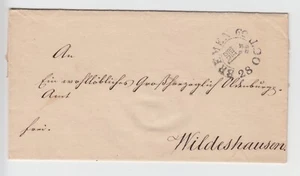 BREMEN
28
An
Ein wohllöbliches Großherzoglich Oldenburg.
Amt
frei.
Wildeshausen